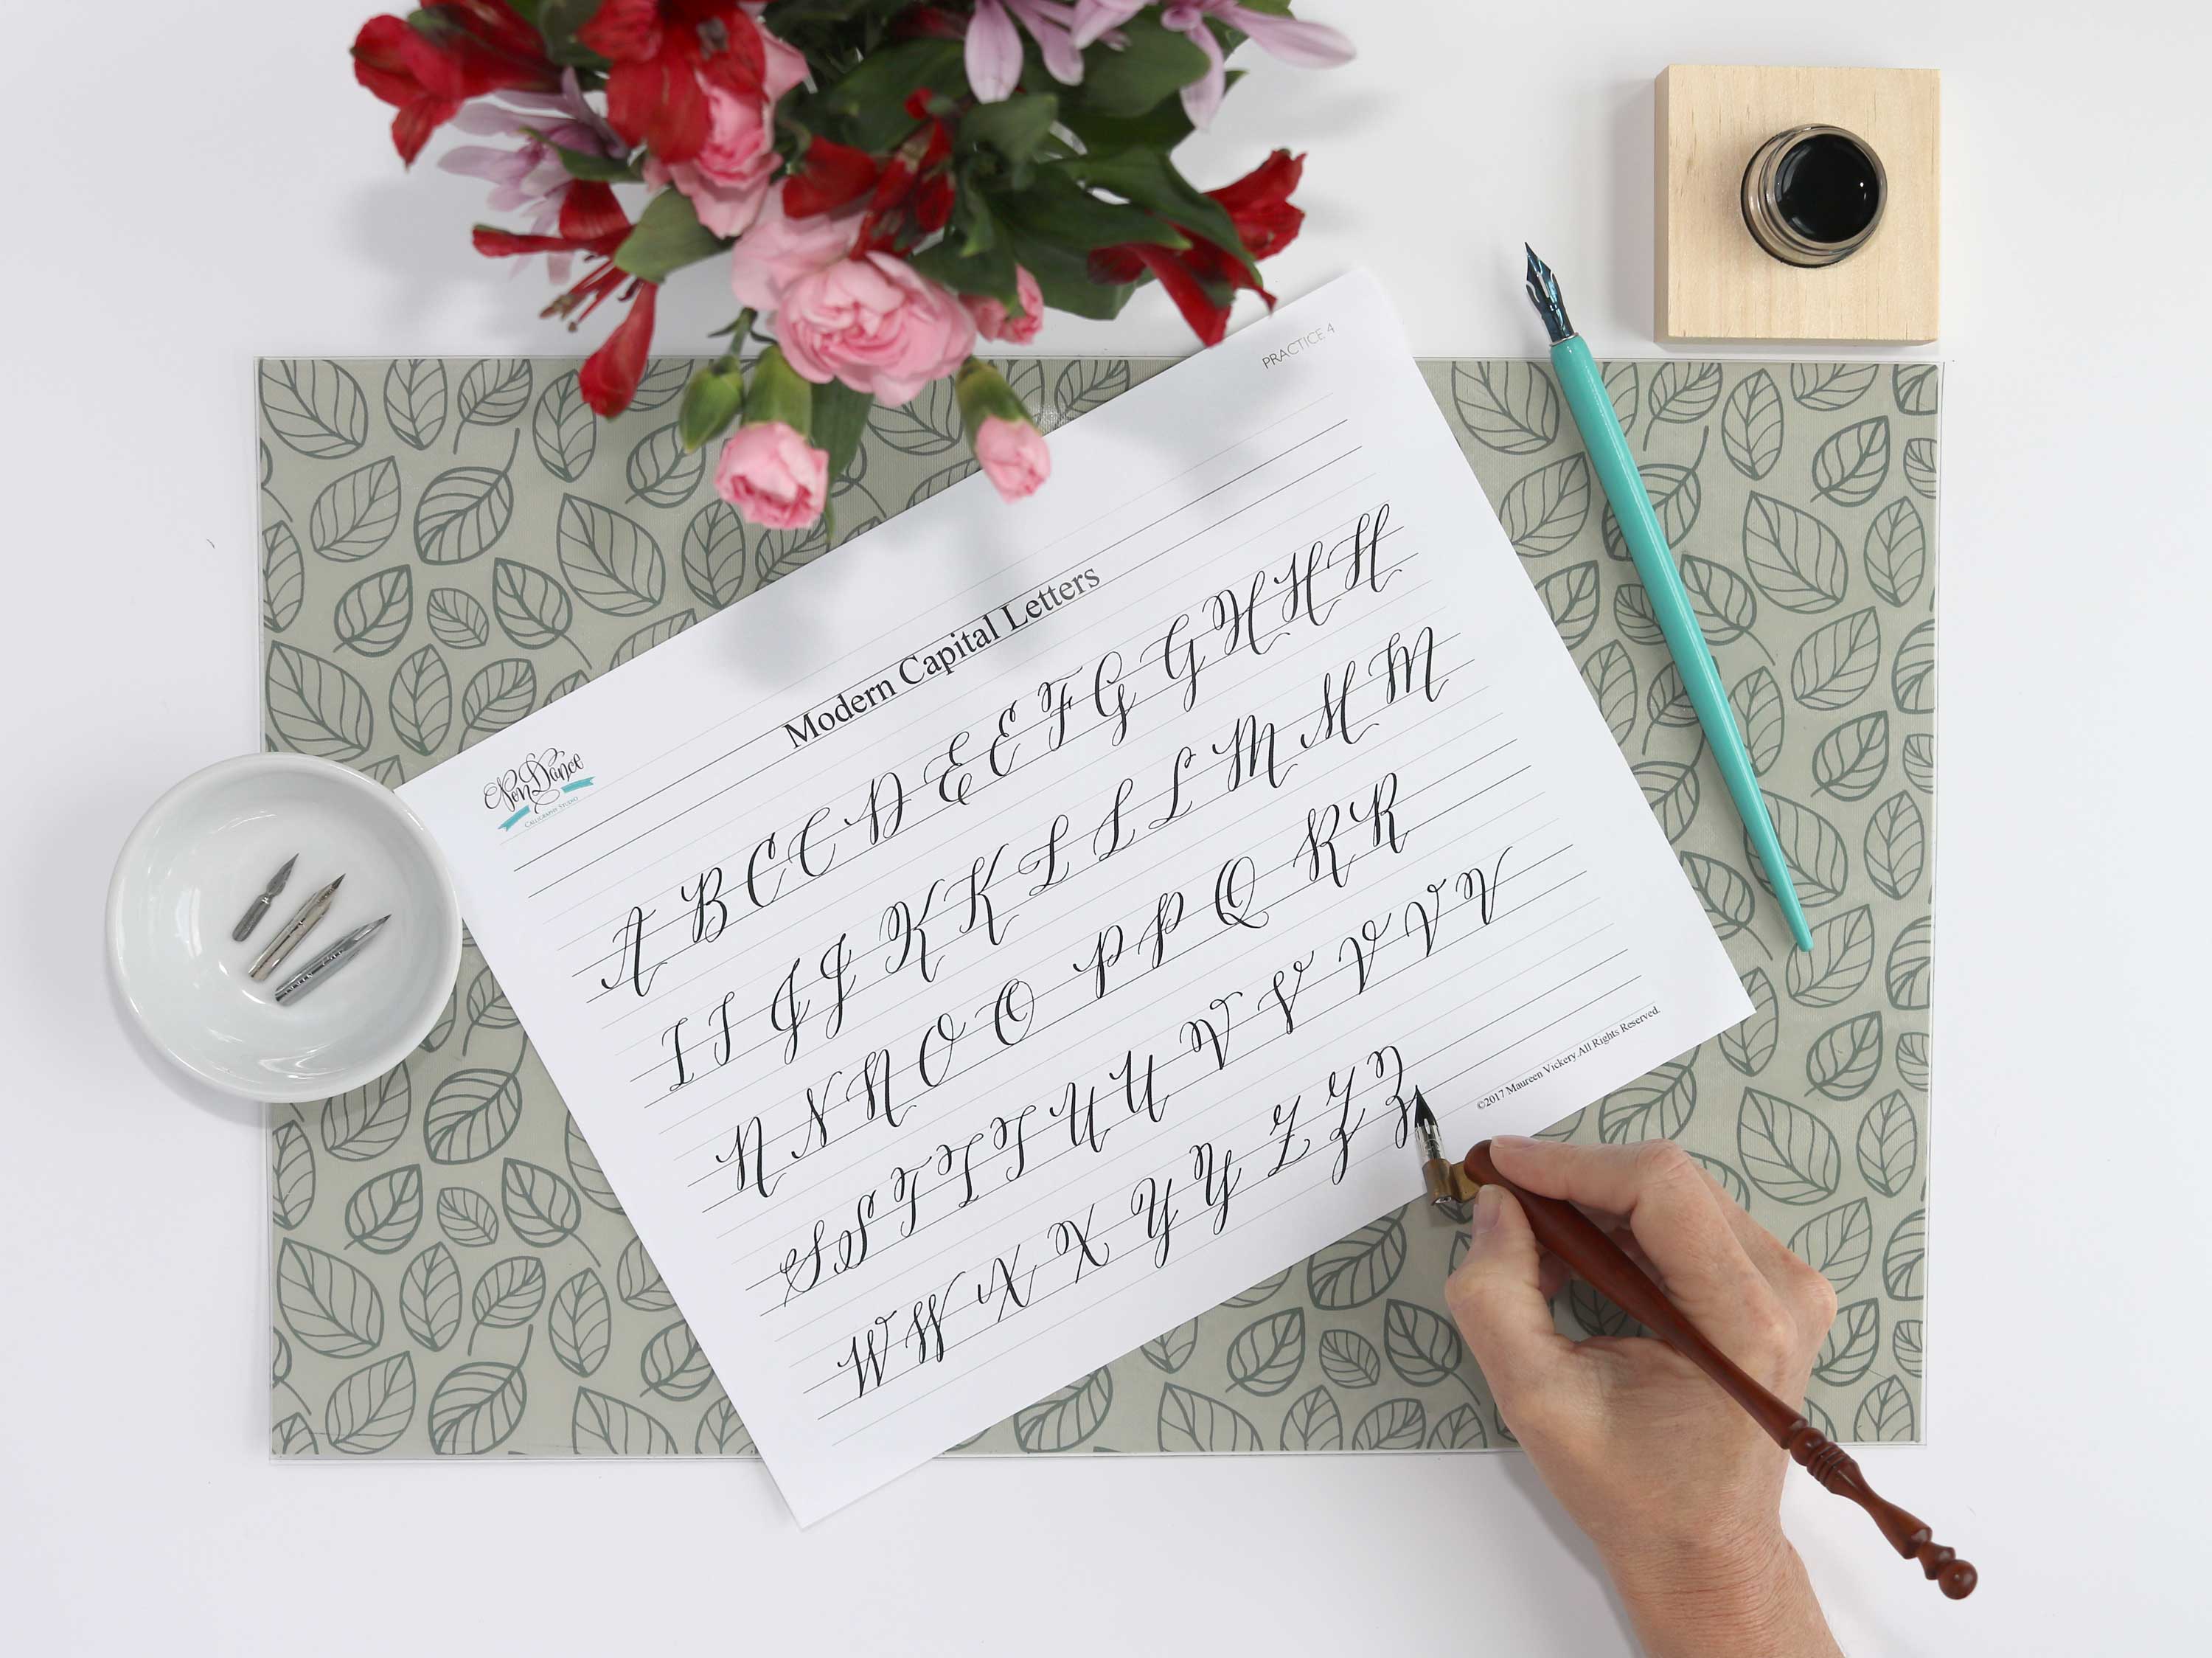 PRACTICE 4
PenDance
CALLIGRAPHY STUDIO
Modern Capital Letters
A B C C D E E F G G H H H
I I J J K K L L L M M M
N N N O O P P Q R R
S S T T T U U V V V V V
W W X X Y Y Z Z Z
©2017 Maureen Vickery.All Rights Reserved.